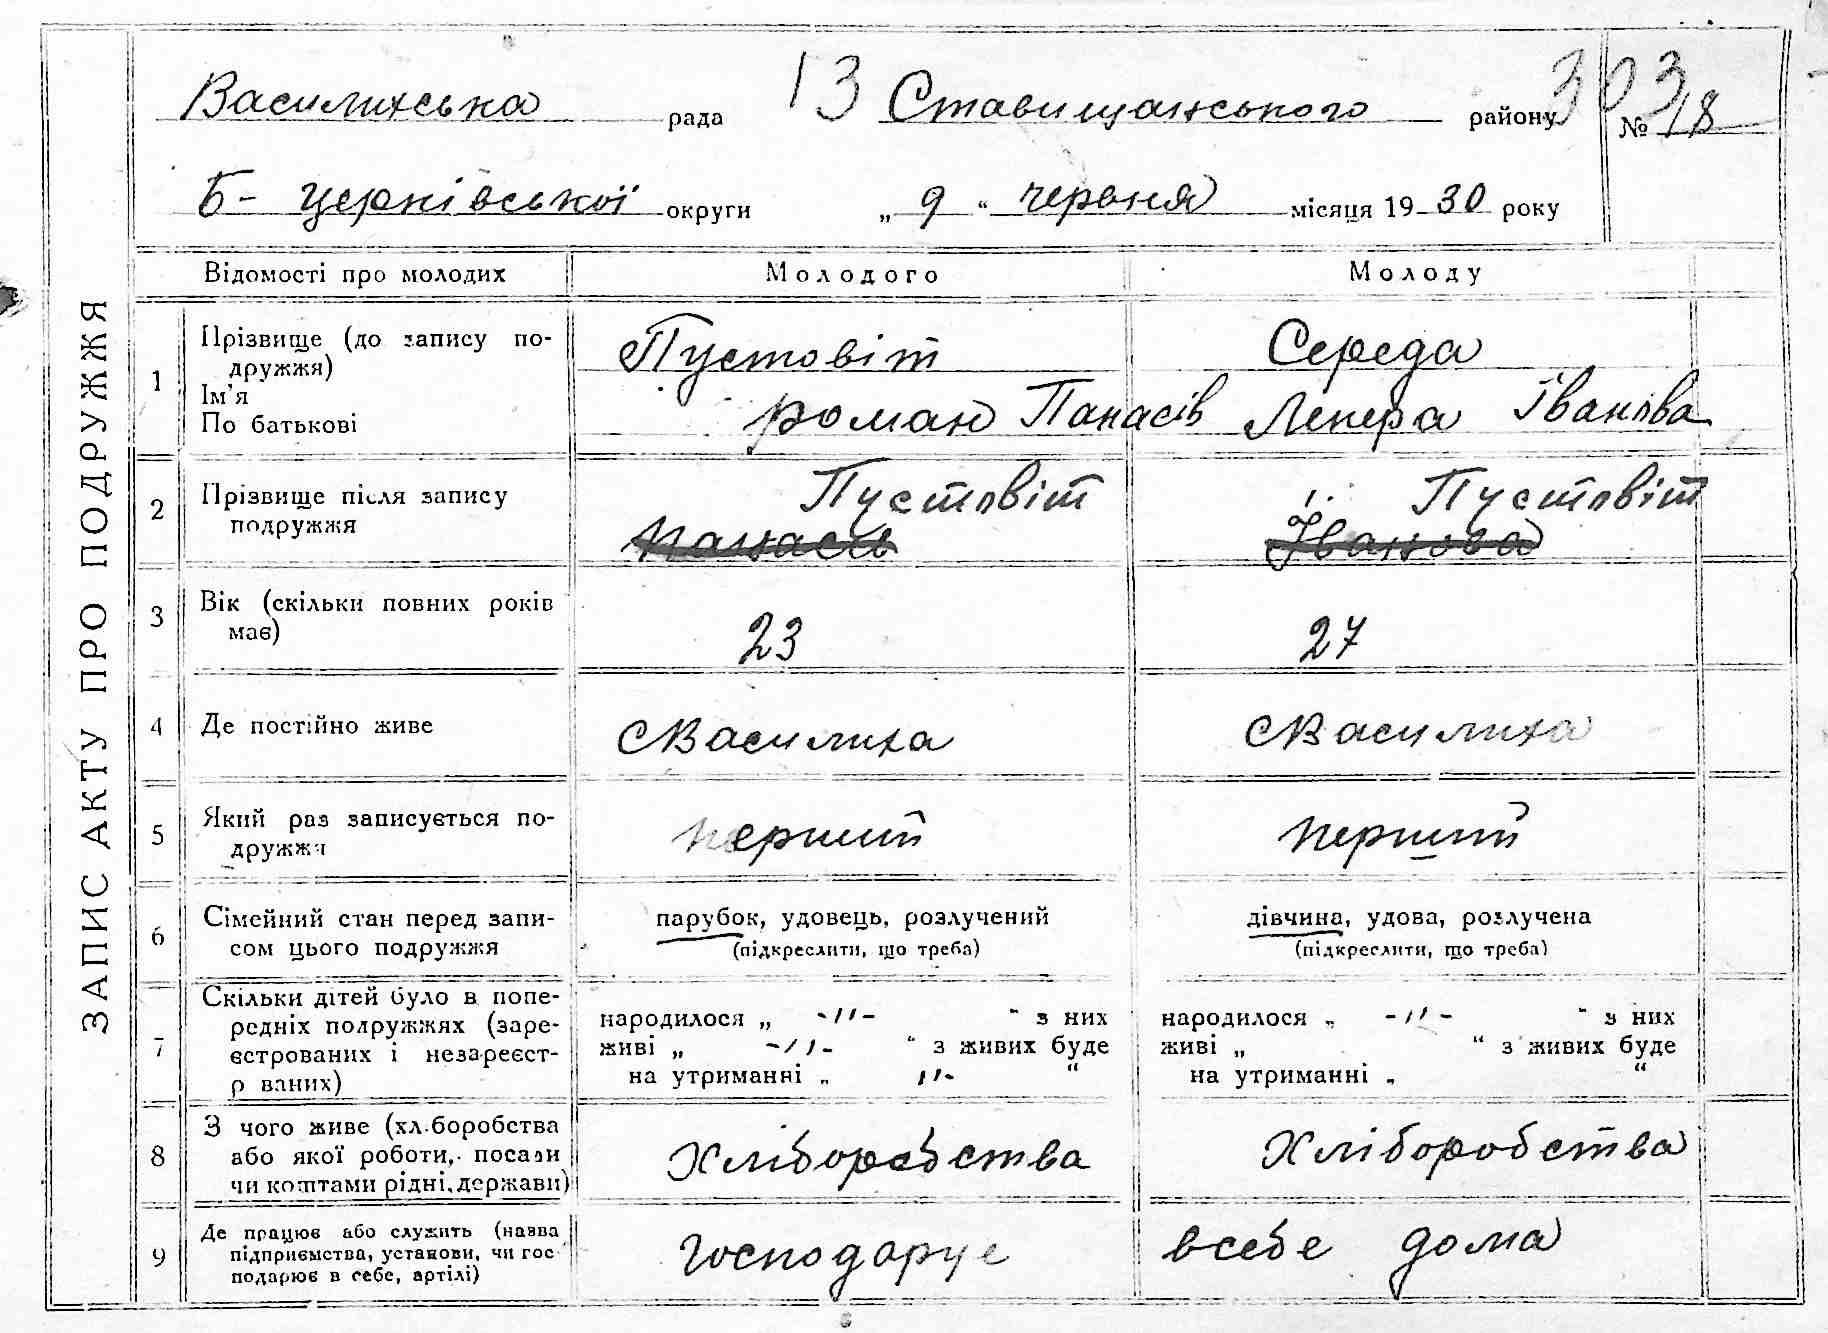 ЗАПИС АКТУ ПРО ПОДРУЖЖЯ
Василихська рада 13 Ставищанського району 303 № 18
Б- Церківської округи „ 9 “ червня місяця 1930 року
Відомості про молодих Молодого Молоду
1 Прізвище (до запису по-
дружжя) Пустовіт Середа
Ім'я
По батькові роман Панасів Лекера Іванова
2 Прізвище після запису Пустовіт Пустовіт
подружжя Панась Іванова
3 Вік (скільки повних років
має) 23 27
4 Де постійно живе с Василиха с Василиха
5 Який раз записується по-
дружжя перший перший
6 Сімейний стан перед запи- парубок, удовець, розлучений дівчина, удова, розлучена
сом цього подружжя (підкреслити, що треба) (підкреслити, що треба)
7 Скільки дітей було в попе-
редніх подружжях (заре- народилося „ -"- “ з них народилося „ -"- “ з них
єстрованих і незареєст- живі „ -"- “ з живих буде живі „ “ з живих буде
р ваних) на утриманні „ "- “ на утриманні „ “
8 З чого живе (хл.боробства
або якої роботи, посади Хліборобства Хліборобства
чи коштами рідні, держави)
9 Де працює або служить (назва
підприємства, установи, чи гос- господарує всебе дома
подарює в себе, артілі)